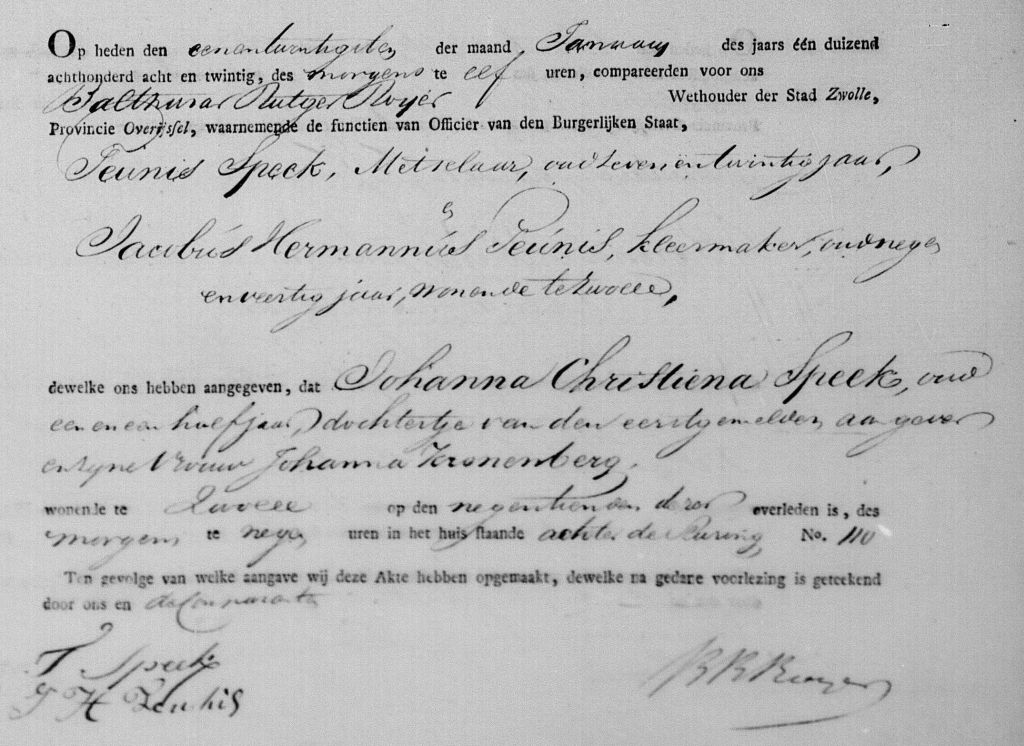 Op heden den eenentwintigsten der maand January des jaars één duizend
achthonderd acht en twintig, des morgens te elf uren, compareerden voor ons
Balthasar Rutger Royer Wethouder der Stad Zwolle,
Provincie Overijssel, waarnemende de functien van Officier van den Burgerlijken Staat,
Teunis Speek, Metselaar, oud zeven en twintig jaar,
&
Jacobus Hermannus Teunis, kleermaker, oud negen
en veertig jaar, wonende te Zwolle,
dewelke ons hebben aangegeven, dat Johanna Christiena Speek, oud
een en een half jaar, dochtertje van den eerstgemelden aangever
en zyne Vrouw Johanna Kronenberg,
wonende te Zwolle op den negentienden dezer overleden is, des
morgens te negen uren in het huis staande achter de No. 110
Ten gevolge van welke aangave wij deze Akte hebben opgemaakt, dewelke na gedane voorlezing is geteekend
door ons en de Comparanten
T Speek
J H Teunis
B R Royer